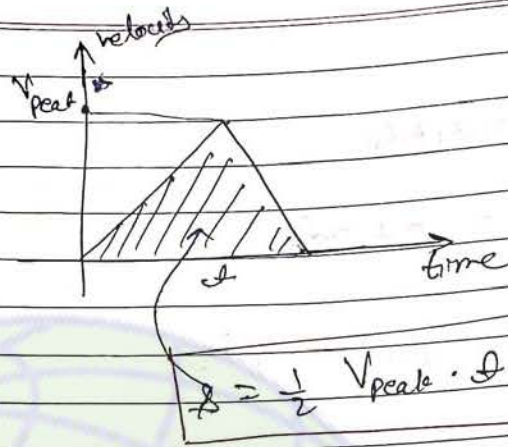 velocity
V_peak
t
time
s = 1/2 V_peak · t